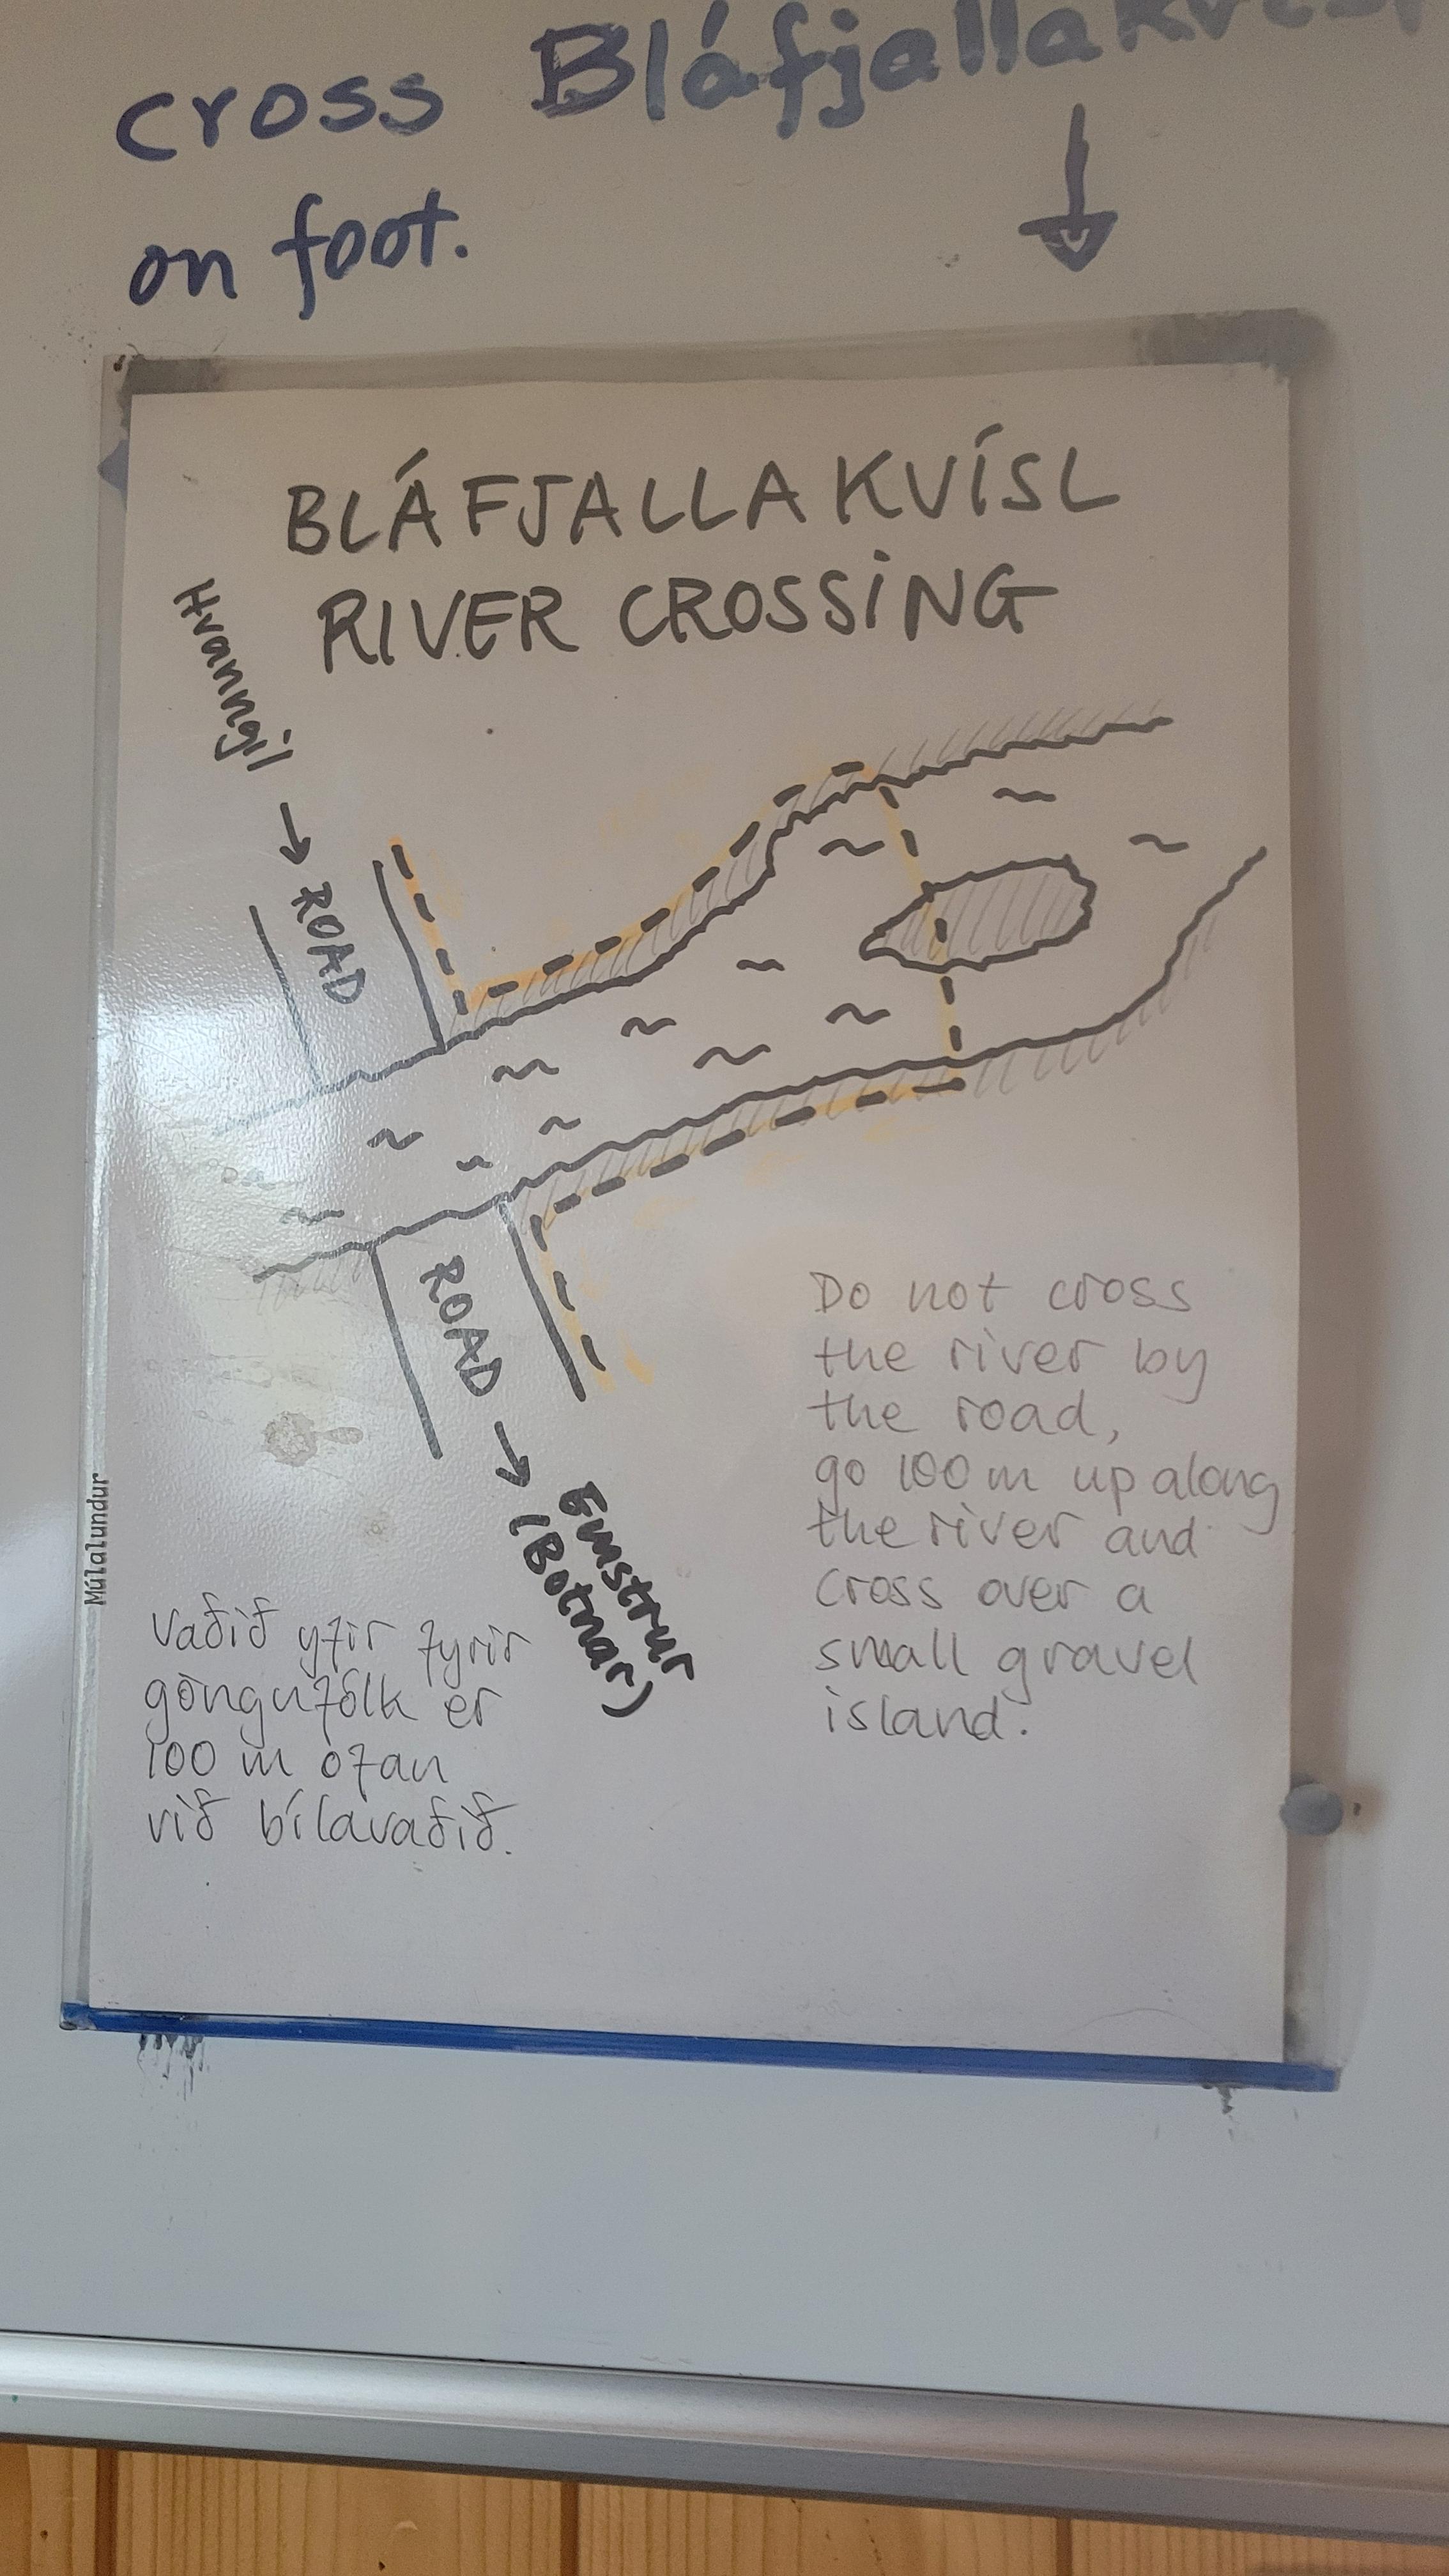 cross Bláfjallakvísl
on foot.
BLÁFJALLAKVÍSL
RIVER CROSSING
Hvanngil
ROAD
ROAD
Emstrur
(Botnar)
Do not cross
the river by
the road,
go 100 m up along
the river and
cross over a
small gravel
island.
Vaðið yfir fyrir
göngufólk er
100 m ofan
við bílavaðið.
Múlalundur